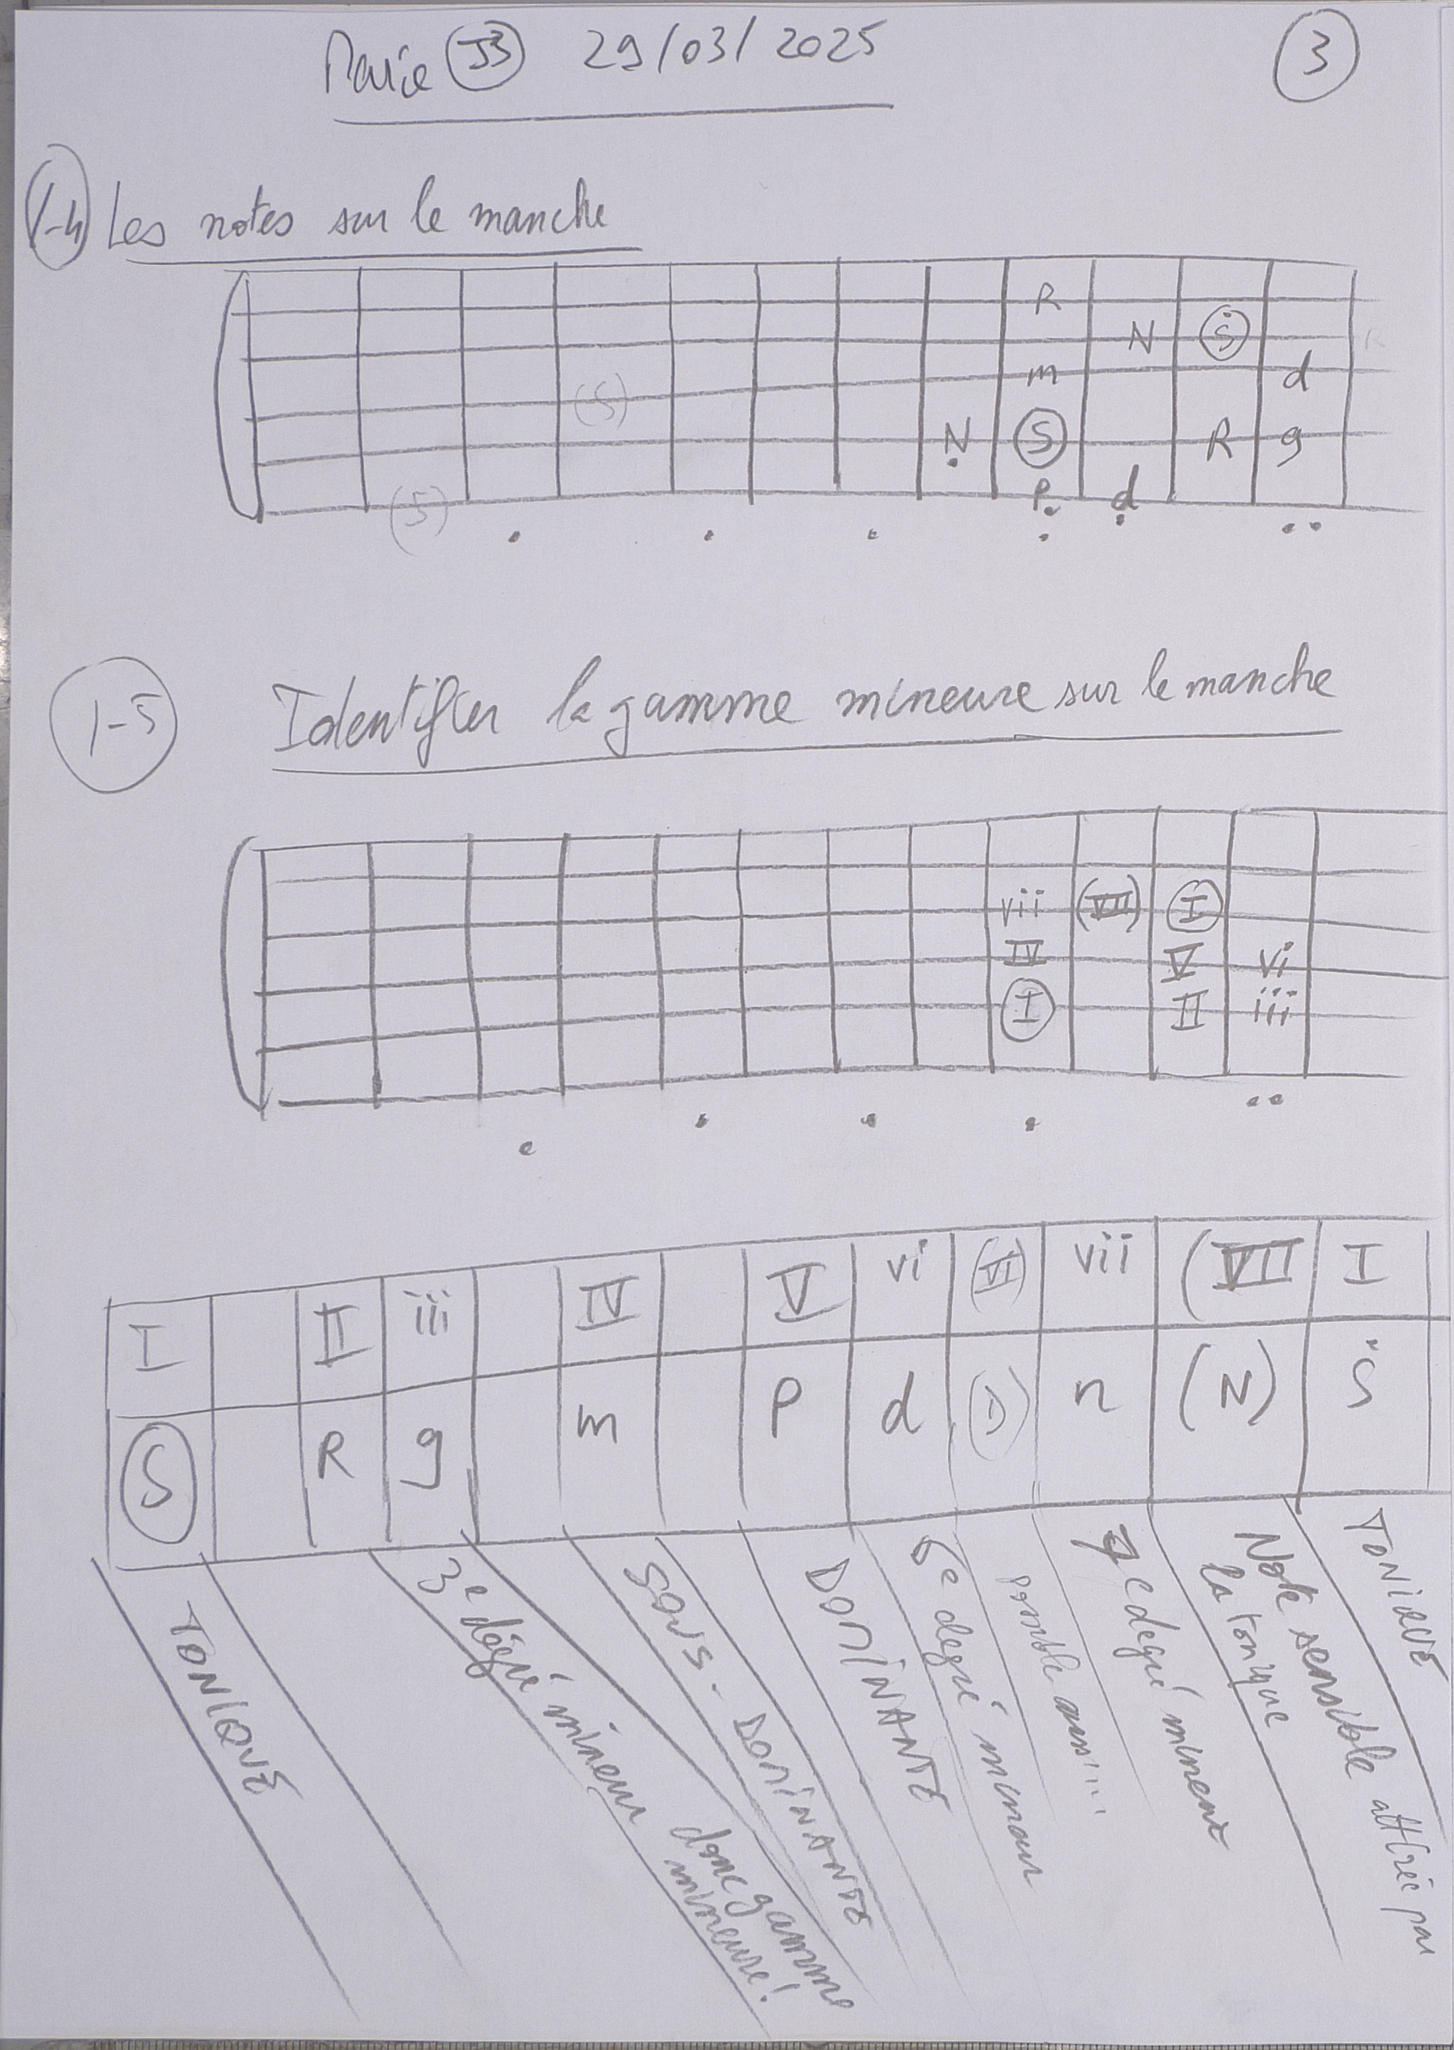 Marie J3 29/03/2025
3
1-4 Les notes sur le manche
R
N S
m d
(S)
N S R g
(S) P d
1-5 Identifier la gamme mineure sur le manche
vii (VII) I
IV V vi
I II iii
I II iii IV V vi (VI) vii (VII I
S R g m P d (D) n (N) S
TONIQUE
3e dégré mineur donc gamme
mineure!
SOUS-DOMINANTE
DOMINANTE
6e degré mineur
possible aussi...
7e degré mineur
Note sensible attirée par
la tonique
TONIQUE